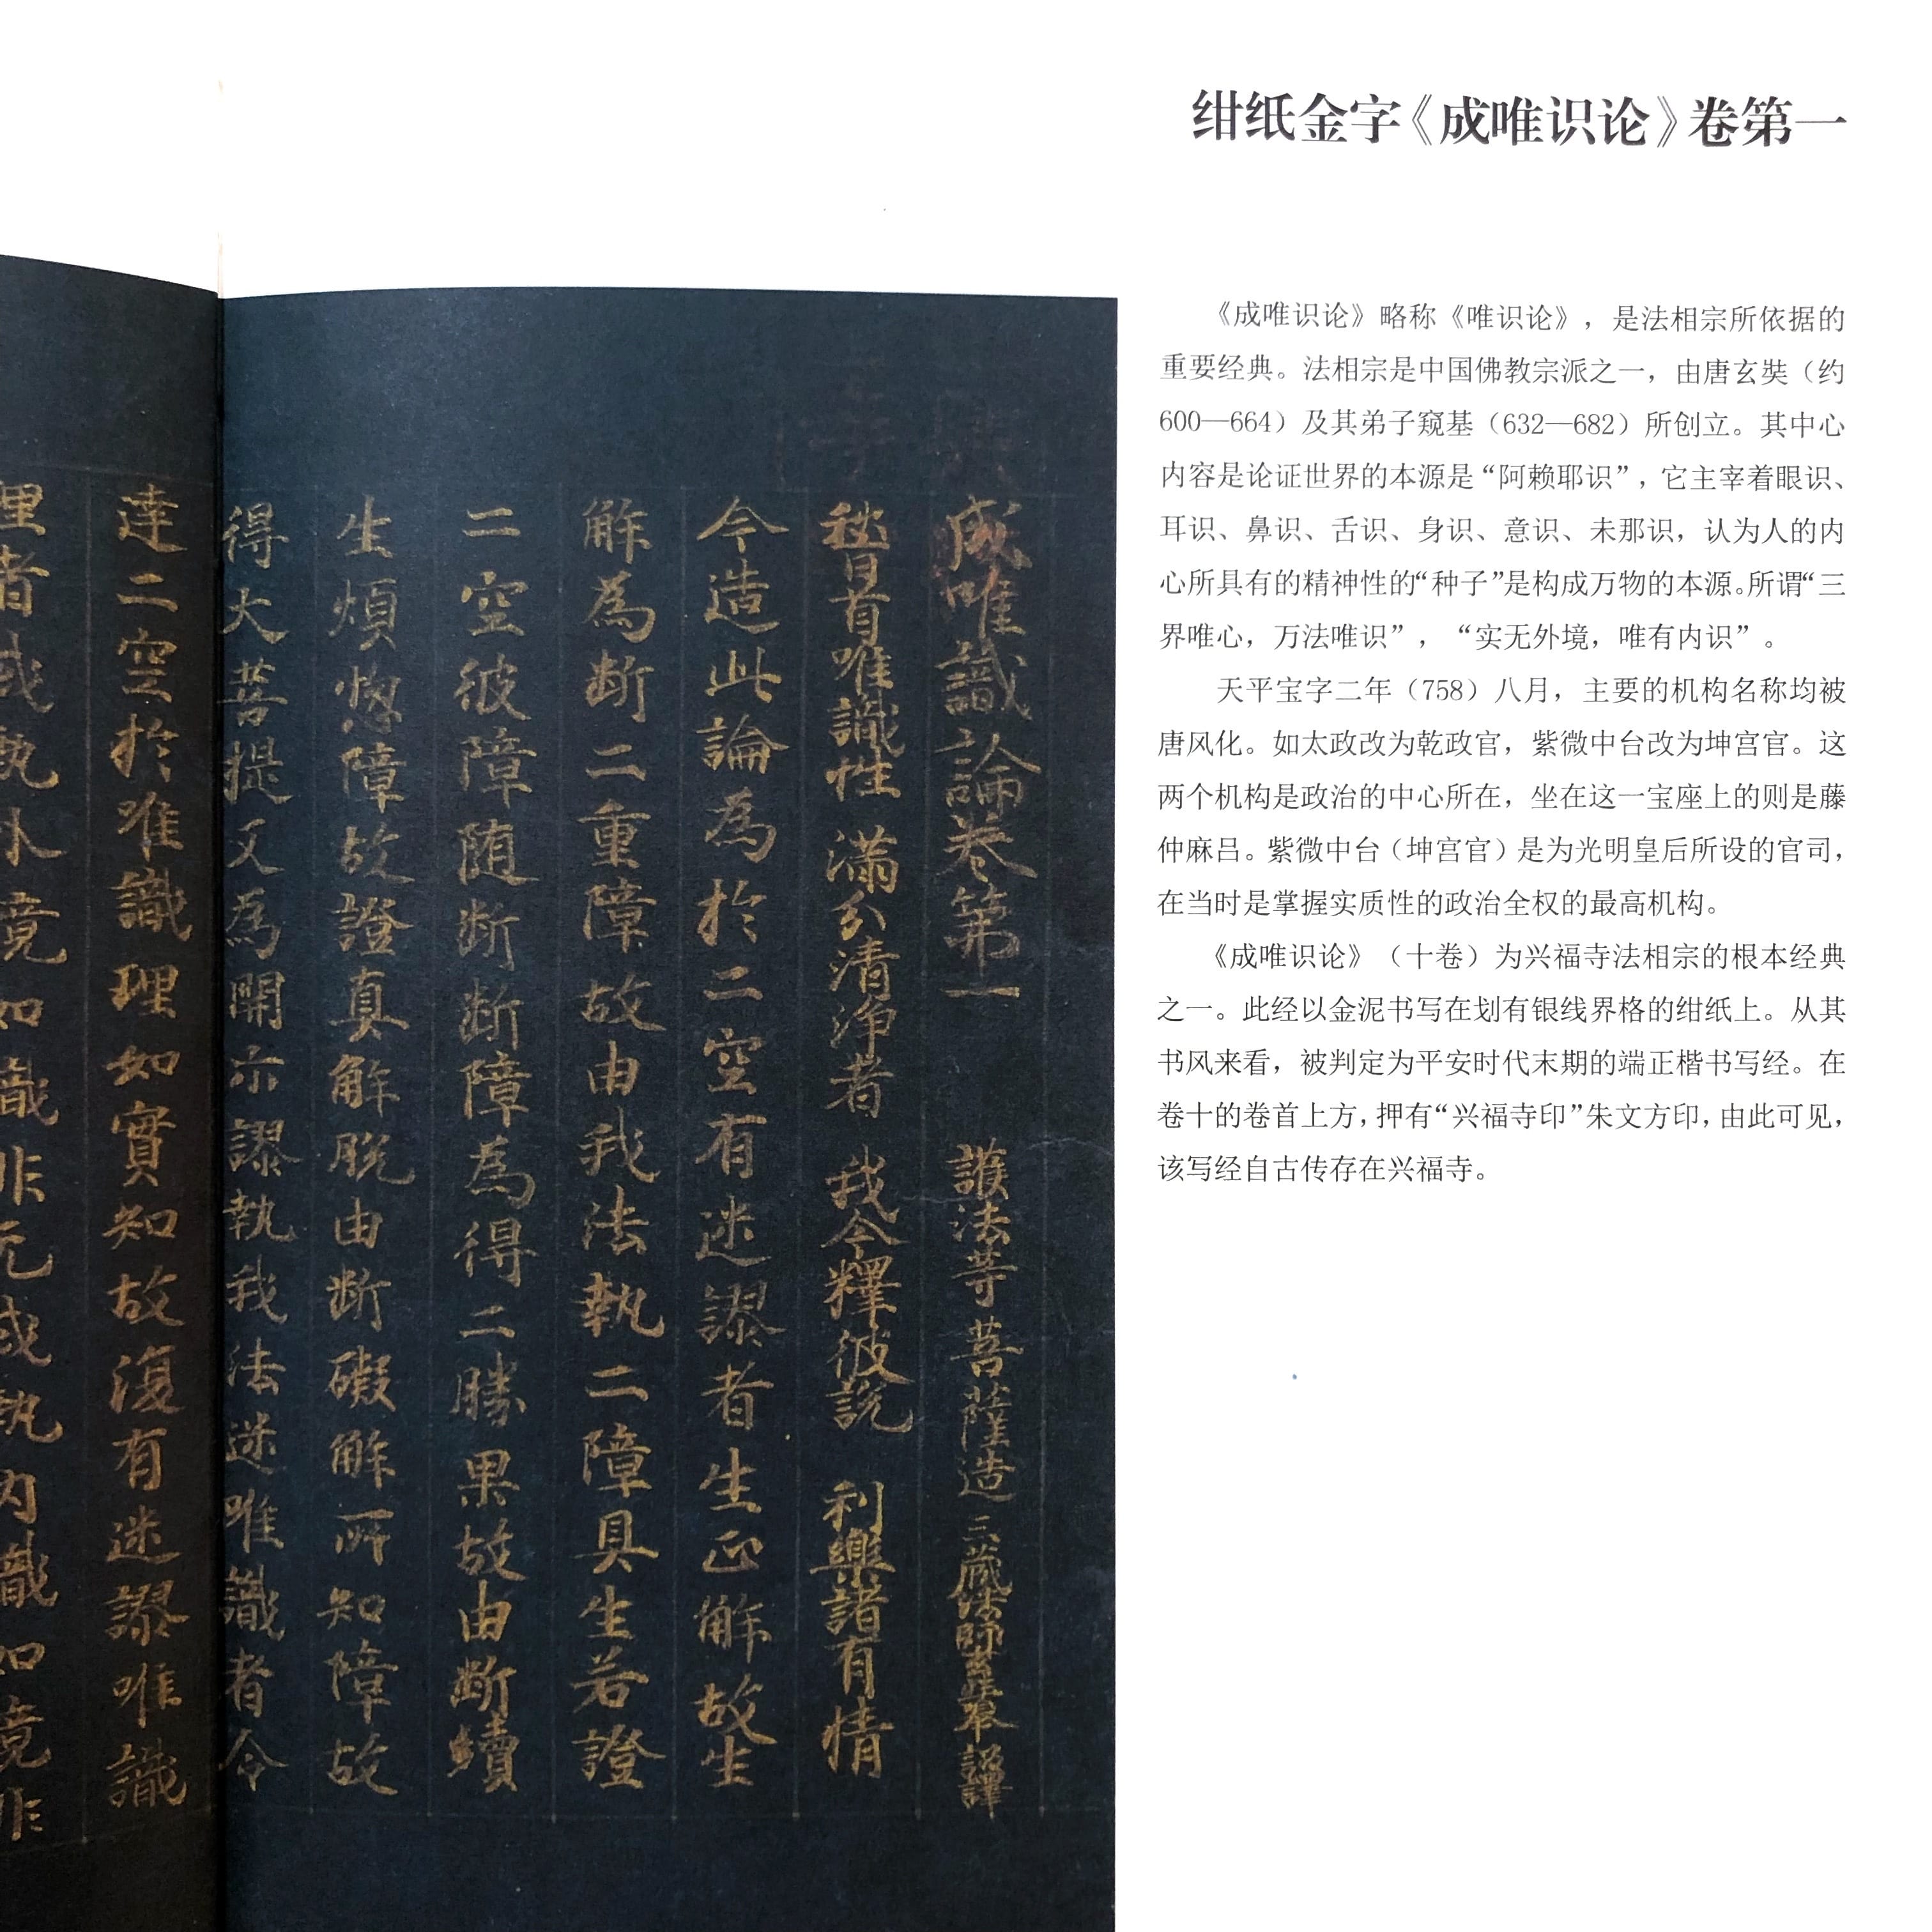 绀纸金字《成唯识论》卷第一
《成唯识论》略称《唯识论》，是法相宗所依据的
重要经典。法相宗是中国佛教宗派之一，由唐玄奘（约
600—664）及其弟子窥基（632—682）所创立。其中心
内容是论证世界的本源是“阿赖耶识”，它主宰着眼识、
耳识、鼻识、舌识、身识、意识、未那识，认为人的内
心所具有的精神性的“种子”是构成万物的本源。所谓“三
界唯心，万法唯识”，“实无外境，唯有内识”。
天平宝字二年（758）八月，主要的机构名称均被
唐风化。如太政改为乾政官，紫微中台改为坤宫官。这
两个机构是政治的中心所在，坐在这一宝座上的则是藤
仲麻吕。紫微中台（坤宫官）是为光明皇后所设的官司，
在当时是掌握实质性的政治全权的最高机构。
《成唯识论》（十卷）为兴福寺法相宗的根本经典
之一。此经以金泥书写在划有银线界格的绀纸上。从其
书风来看，被判定为平安时代末期的端正楷书写经。在
卷十的卷首上方，押有“兴福寺印”朱文方印，由此可见，
该写经自古传存在兴福寺。
成唯識論卷第一 護法等菩薩造 三藏法師玄奘奉 譯
稽首唯識性 滿分清淨者 我今釋彼說 利樂諸有情
今造此論為於二空有迷謬者生正解故生
解為断二重障故由我法執二障具生若證
二空彼障随断断障為得二勝果故由断續
生煩惱障故證真解脱由断礙解所知障故
得大菩提又為開示謬執我法迷唯識者令
達二空於唯識理如實知故復有迷謬唯識
理者或執外境如識非无或執内識如境非